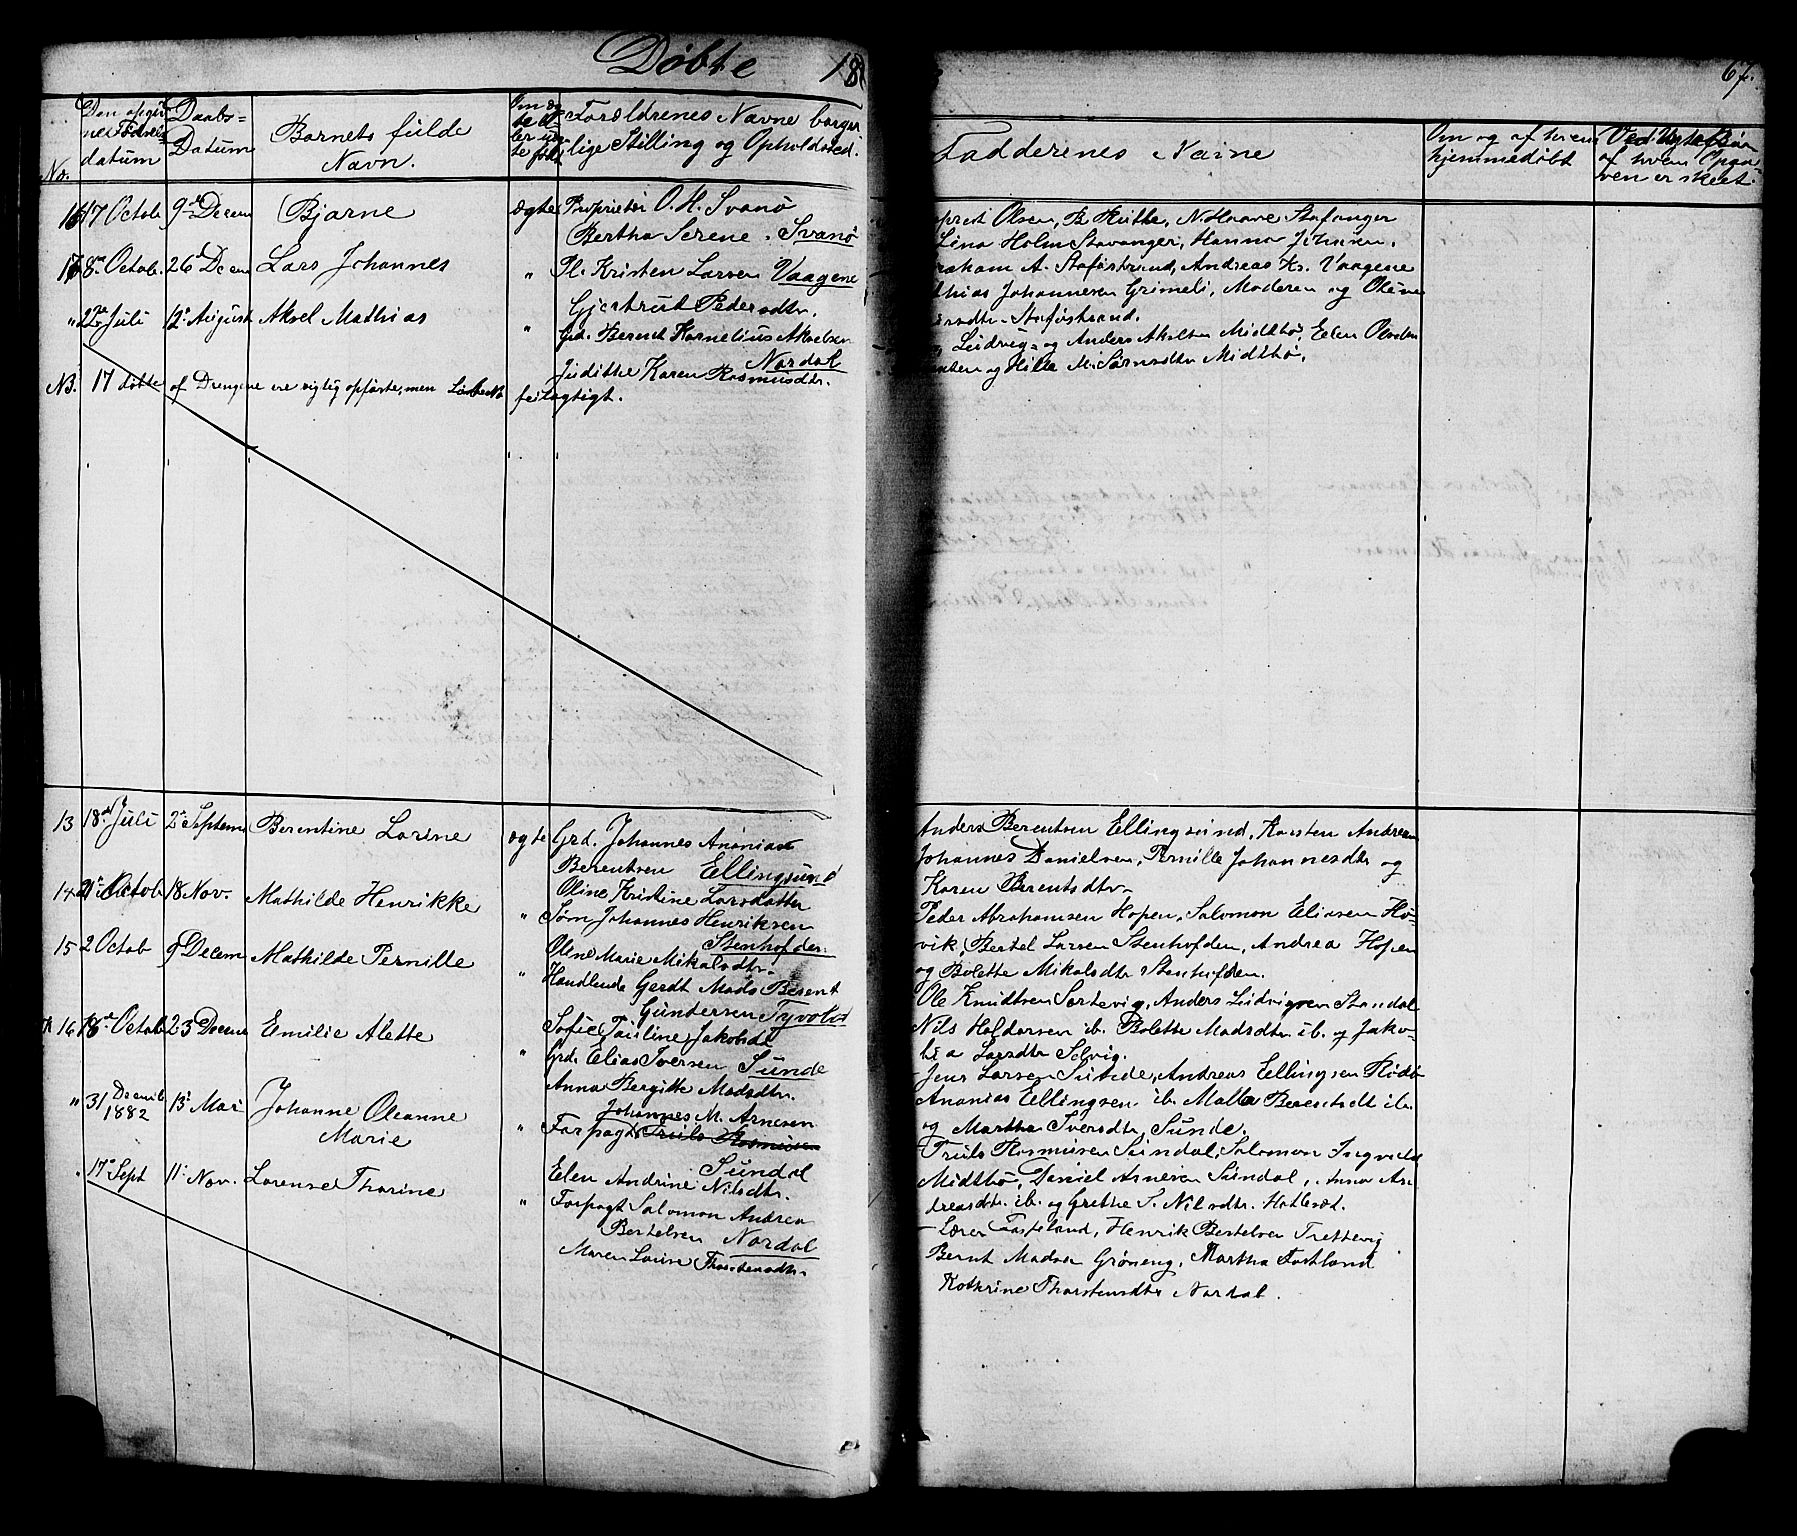 Døbte 18
67.
No.
Den opgiv
nes Fødsels
datum
Daabs=
Datum
Barnets fulde
Navn.
Forældrenes Navne borger
lige Stilling og Opholdssted.
Faddernes Navne
Om og af hvem
hjemmedøbt
af hvem Opga
ven er skeet.
16 17 Octob 9de Decem Bjarne ægte Proprietær O. H. Svanø
Bertha Serene. Svanø
Olsen, N. Haave Stafanger
Lina Holm Stavanger, Hanna Johnsen.
8de Octob. 26de Decem Lars Johannes " Pl. Kristen Larsen Vaagene
Gjertrud Pedersdtr.
A. Staföstrand, Andreas Kr. Vaagene
thias Johannesen Grimeli, Moderen og Oline
Staföstrand.
" 22de Juli 12te August Aksel Mathias " Grd. Berent Kornelius Akselsen
Nordal
Judithe Karen Rasmusdtr.
Ludvig og Anders Akselsen Midtbø, Elen Olsdtr
og Hille M. Sørnsdtr Midtbø.
NB. 17 døbte af Drengene ere rigtig opførte, men feilagtigt.
13 18de Juli 2de Septem Berentine Larine ægte Grd. Johannes Ananias
Berentsen Ellingsund
Oline Kristine Larsdatter
Anders Berentsen Ellingsund, Karsten Andreas
Johannes Danielsen, Pernille Johannesdtr og
Karen Berentsdtr
14 21de Octob 18 Nov. Mathilde Henrikke " Sørn Johannes Henriksen
Stenhofden
Oline Marie Mikalsdtr.
Peder Abrahamsen Hopen, Salomon Eliasen Hø-
vik, Bertel Larsen Stenhofden, Andrea Hopen
og Bolette Mikalsdtr Stenhofden.
15 2 Octob 9 Decem Mathilde Pernille " Handlende Gerdt Mads Berent
Gundersen Tyvold
Sofie Pauline Jakobsdtr
Ole Knudtsen Sortevig, Anders Ludvigsen Standal
Nils Haldorsen ib. Bolette Madsdtr ib. og Jako-
bia Larsdtr Selvig.
16 18de Octob 23 Decem Emilie Alette " Grd. Elias Iversen Sunde
Anna Bergitte Madsdtr.
Jens Larsen Sunde, Andreas Ellingsen Rødø
Ananias Ellingsen ib. Malla Berentsdt ib.
og Martha Iversdtr, Sunde.
" 31 Decemb
1882 13de Mai Johanne Oleanne
Marie
" Johannes M. Arnesen
Forpagt. Truls Rasmusen
Sundal
Elen Andrine Nilsdtr.
Truls Rasmusen Sundal, Salomon Ingvald
Midtbø, Daniel Arnesen Sundal, Anna An-
dreasdtr. ib. og Grethe S. Nilsdtr. Hatleset.
" 17de Sept 11te Nov. Lorense Tharine " Forpagt Salomon Andreas
Bertelsen Nordal
Maren Louise Thorstensdtr.
Lærer Fasteland, Henrik Bertelsen Trettevig
Bernt Madsen Grøneng, Martha Fastland
Kathrine Thorstensdtr Nordal.